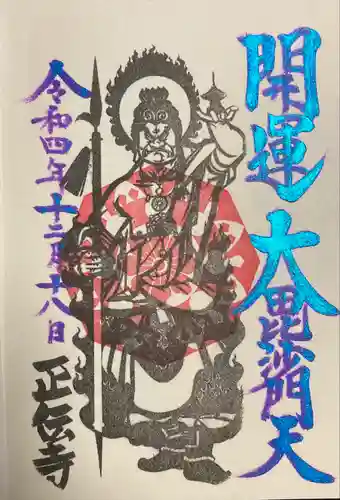 開運 大毘沙門天
令和四年十二月十八日
正伝寺